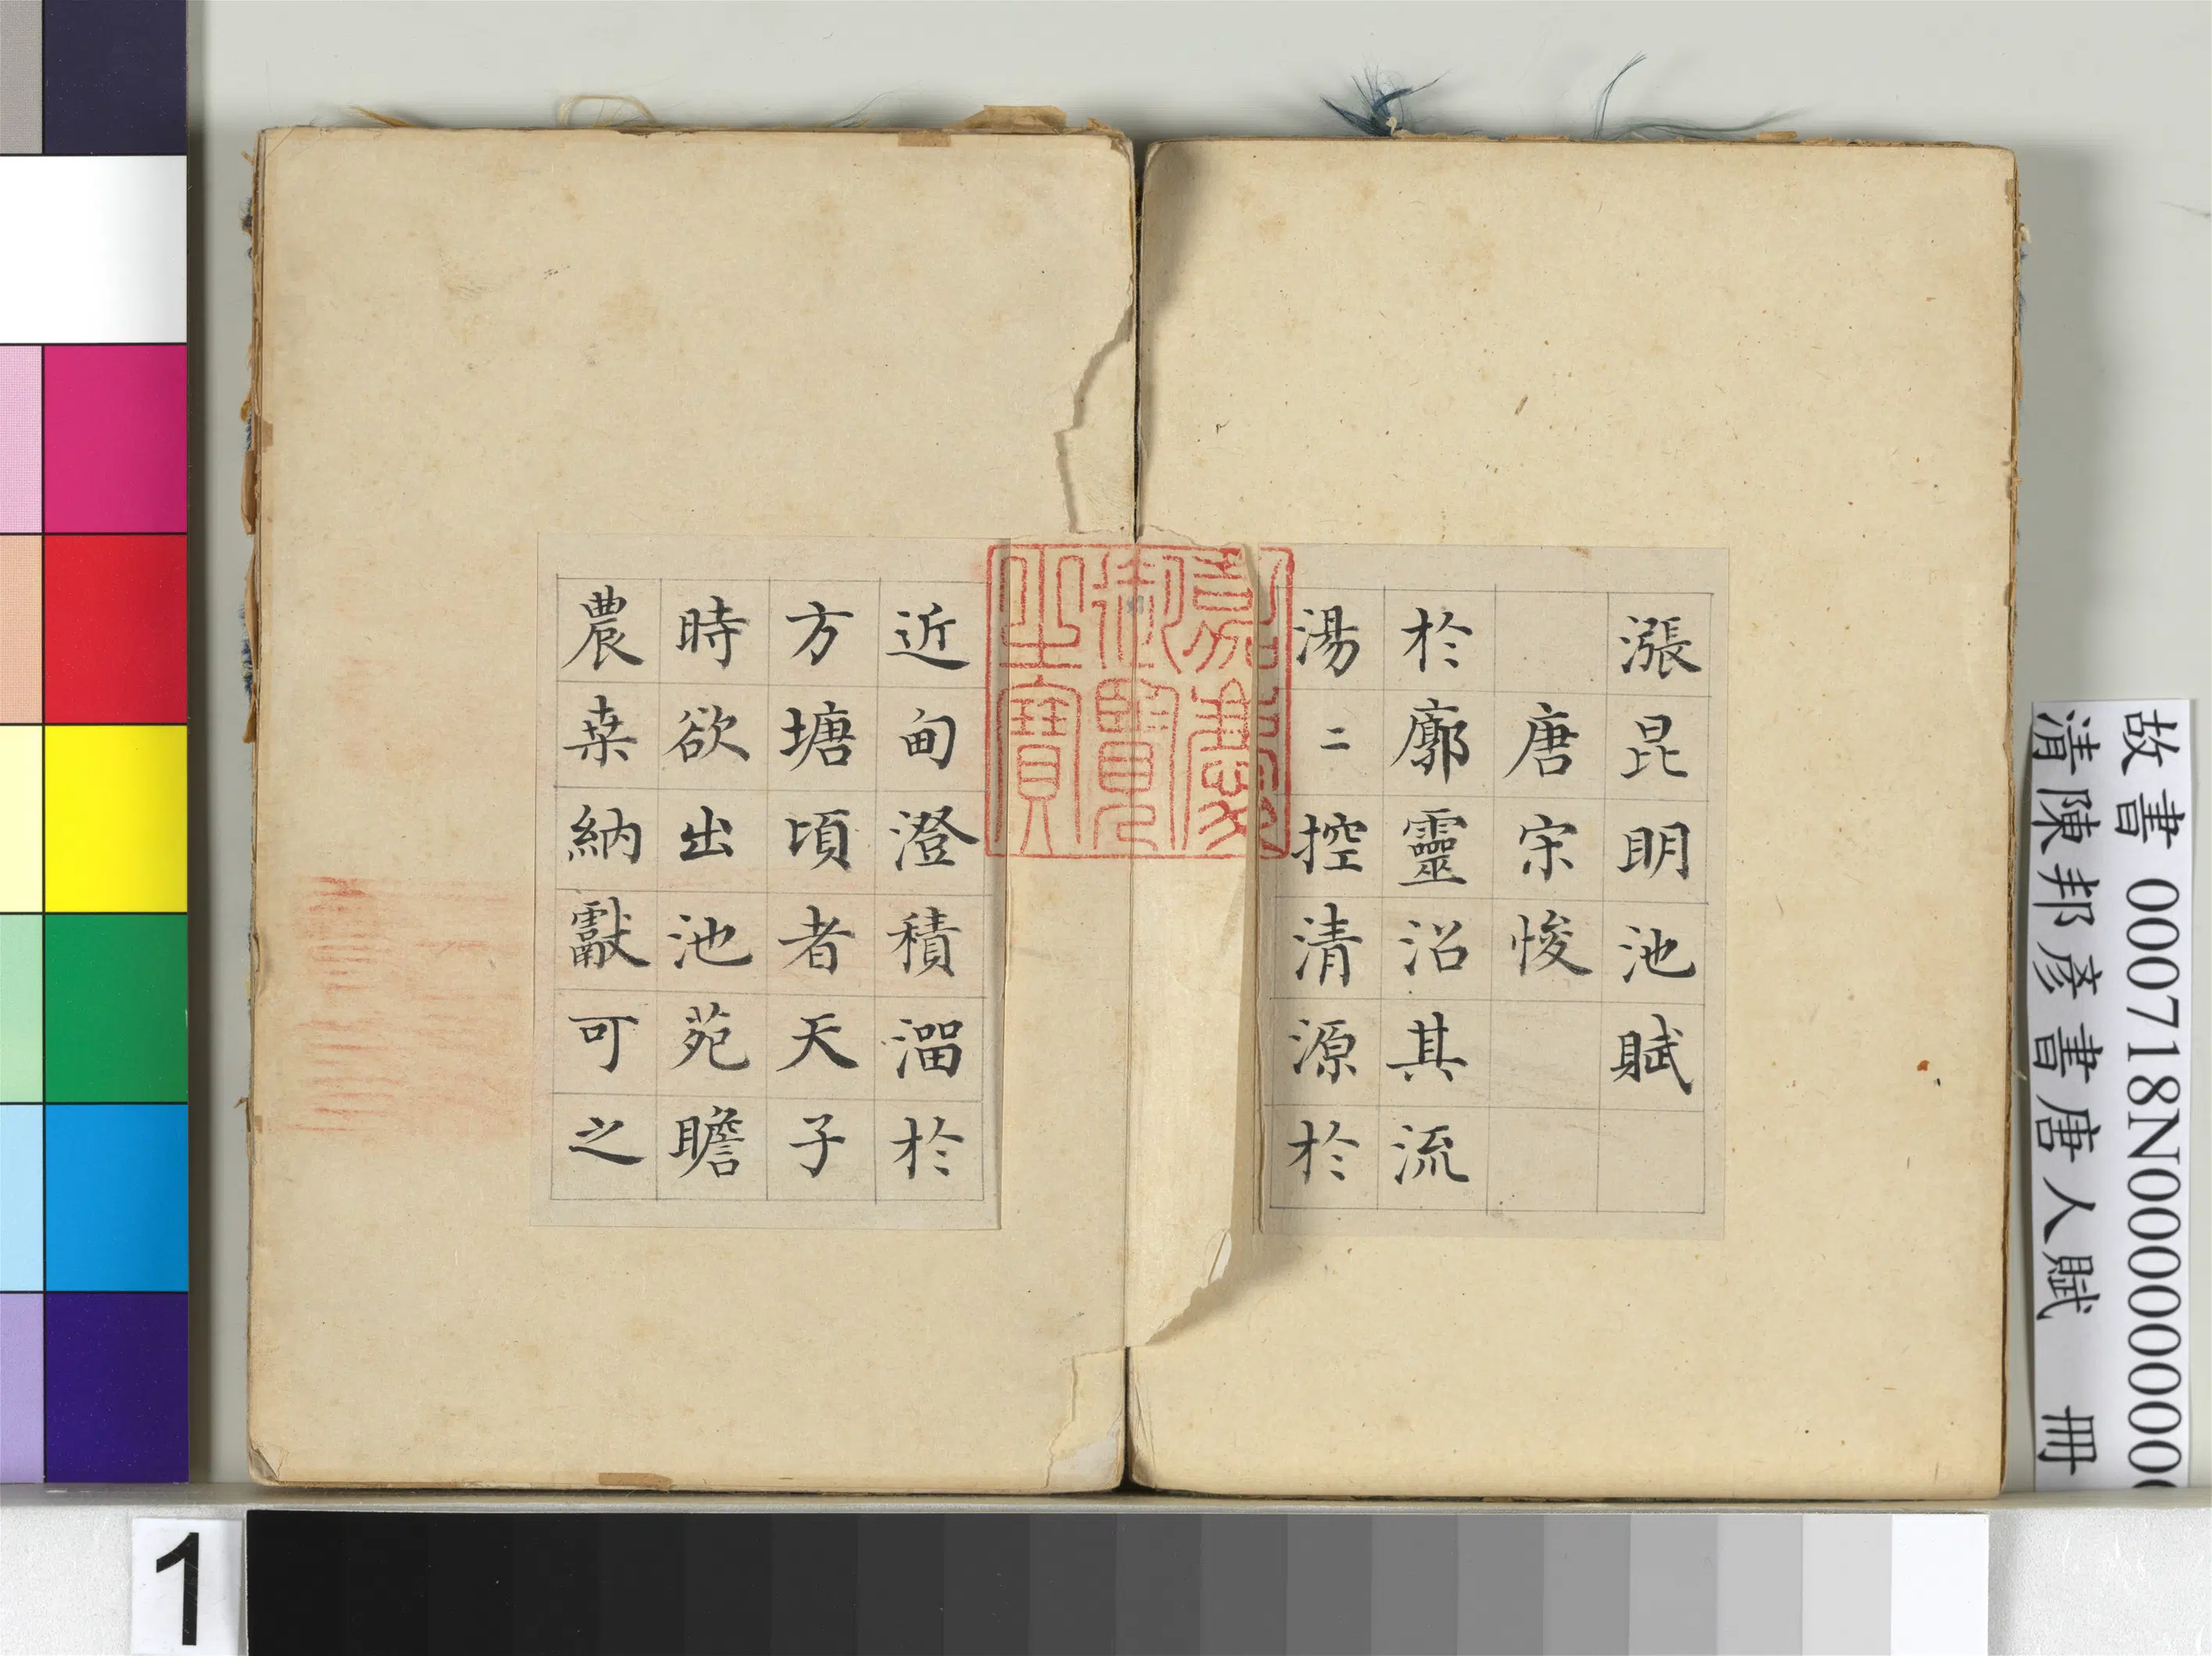 漲昆明池賦
唐宋悛
於廓靈沼其流
湯二控清源於
近甸澄積溜於
方塘頃者天子
時欲出池苑瞻
農桒納獻可之
嘉慶
御覽
之寶
故書 000718N00000000
清陳邦彥書唐人賦 冊
1